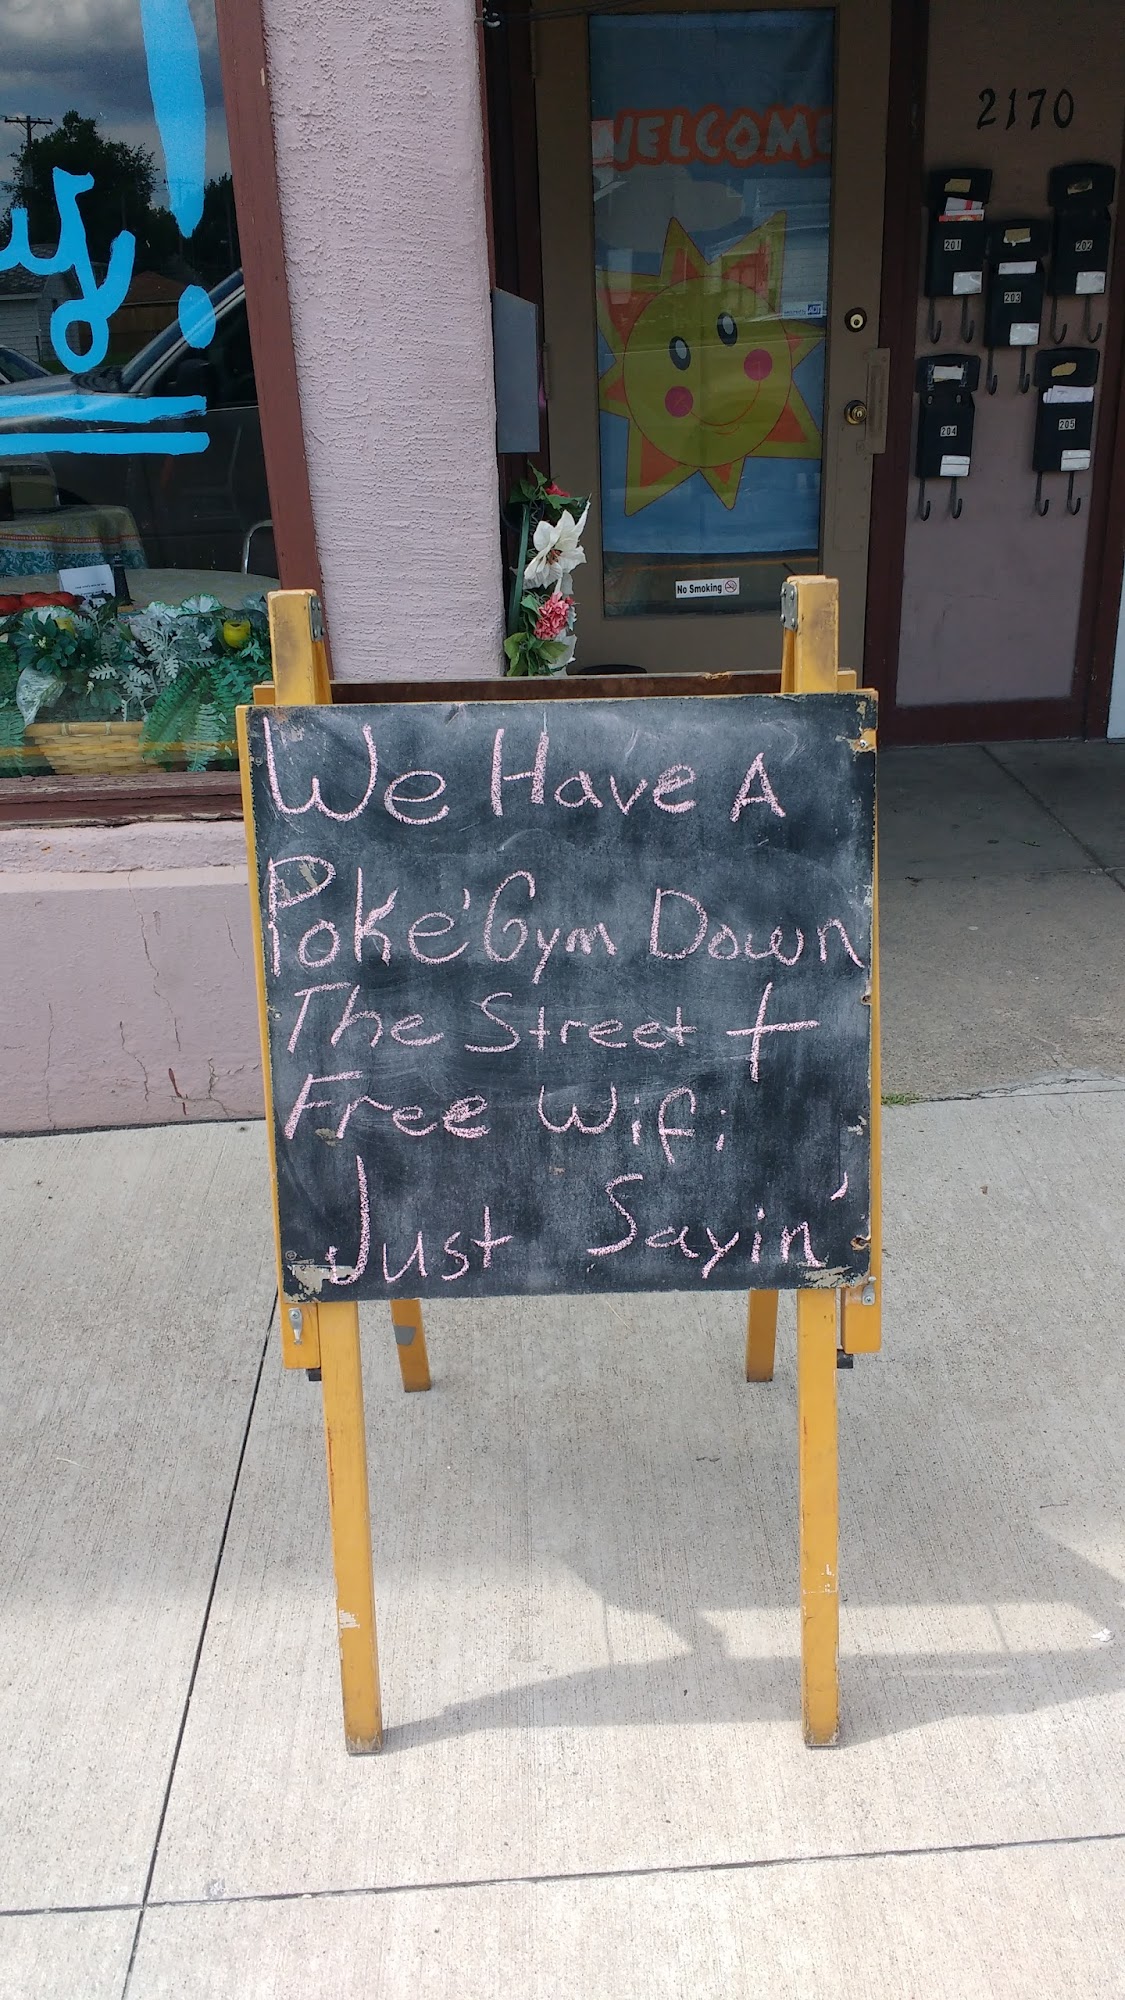 WELCOME
2170
201
202
203
204
205
ADT
No Smoking
We Have A
Poke' Gym Down
The Street +
Free Wifi
Just Sayin'